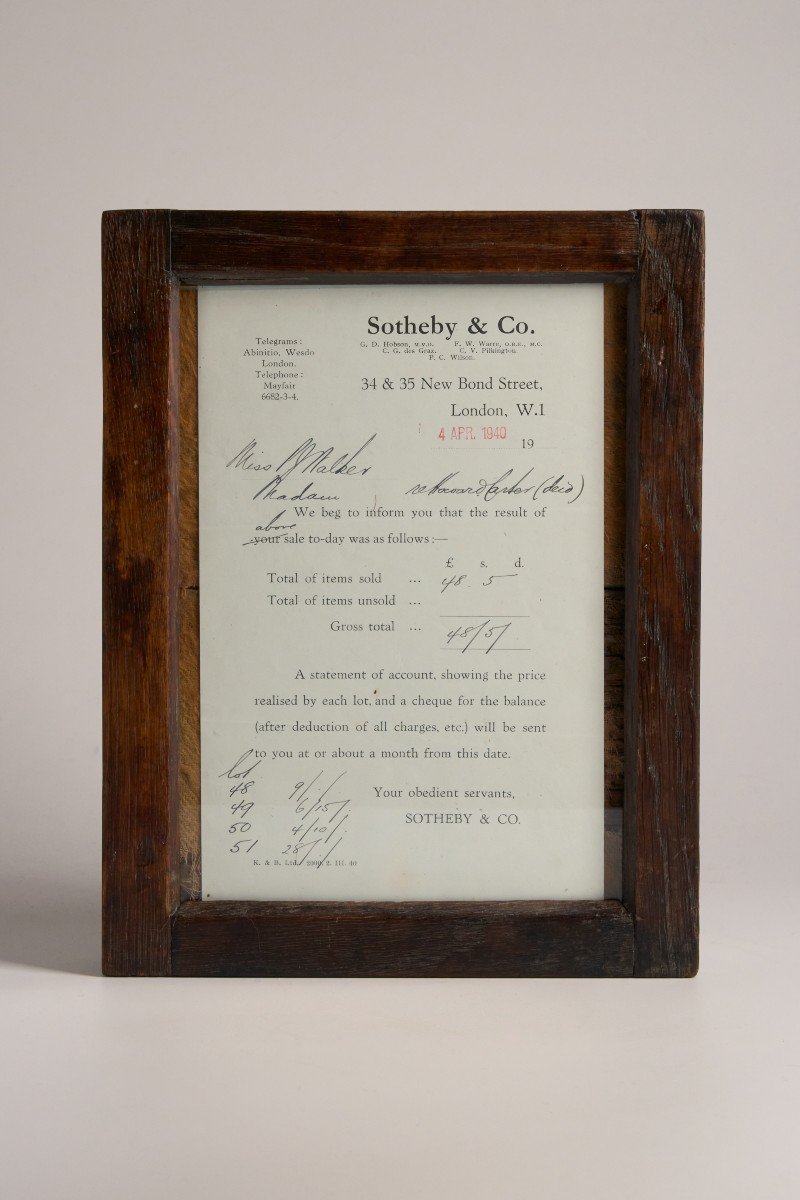 Sotheby & Co.
G. D. Hobson, M.V.O. F. W. Warre, O.B.E., M.C.
C. G. des Graz. C. V. Pilkington.
P. C. Wilson.
Telegrams:
Abinitio, Wesdo
London.
Telephone:
Mayfair
6682-3-4.
34 & 35 New Bond Street,
London, W.1
4 APR. 1940 19
Miss Walker
Madam re Howard Carter (decd)
We beg to inform you that the result of
above
your sale to-day was as follows:—
£ s. d.
Total of items sold ... 48. 5
Total of items unsold ...
Gross total ... 48/5/.
A statement of account, showing the price
realised by each lot, and a cheque for the balance
(after deduction of all charges, etc.) will be sent
to you at or about a month from this date.
lot
48 9/./.
49 6/15/.
50 4/10/.
51 28/./.
Your obedient servants,
SOTHEBY & CO.
K. & B. Ltd. 2000. 2. III. 40